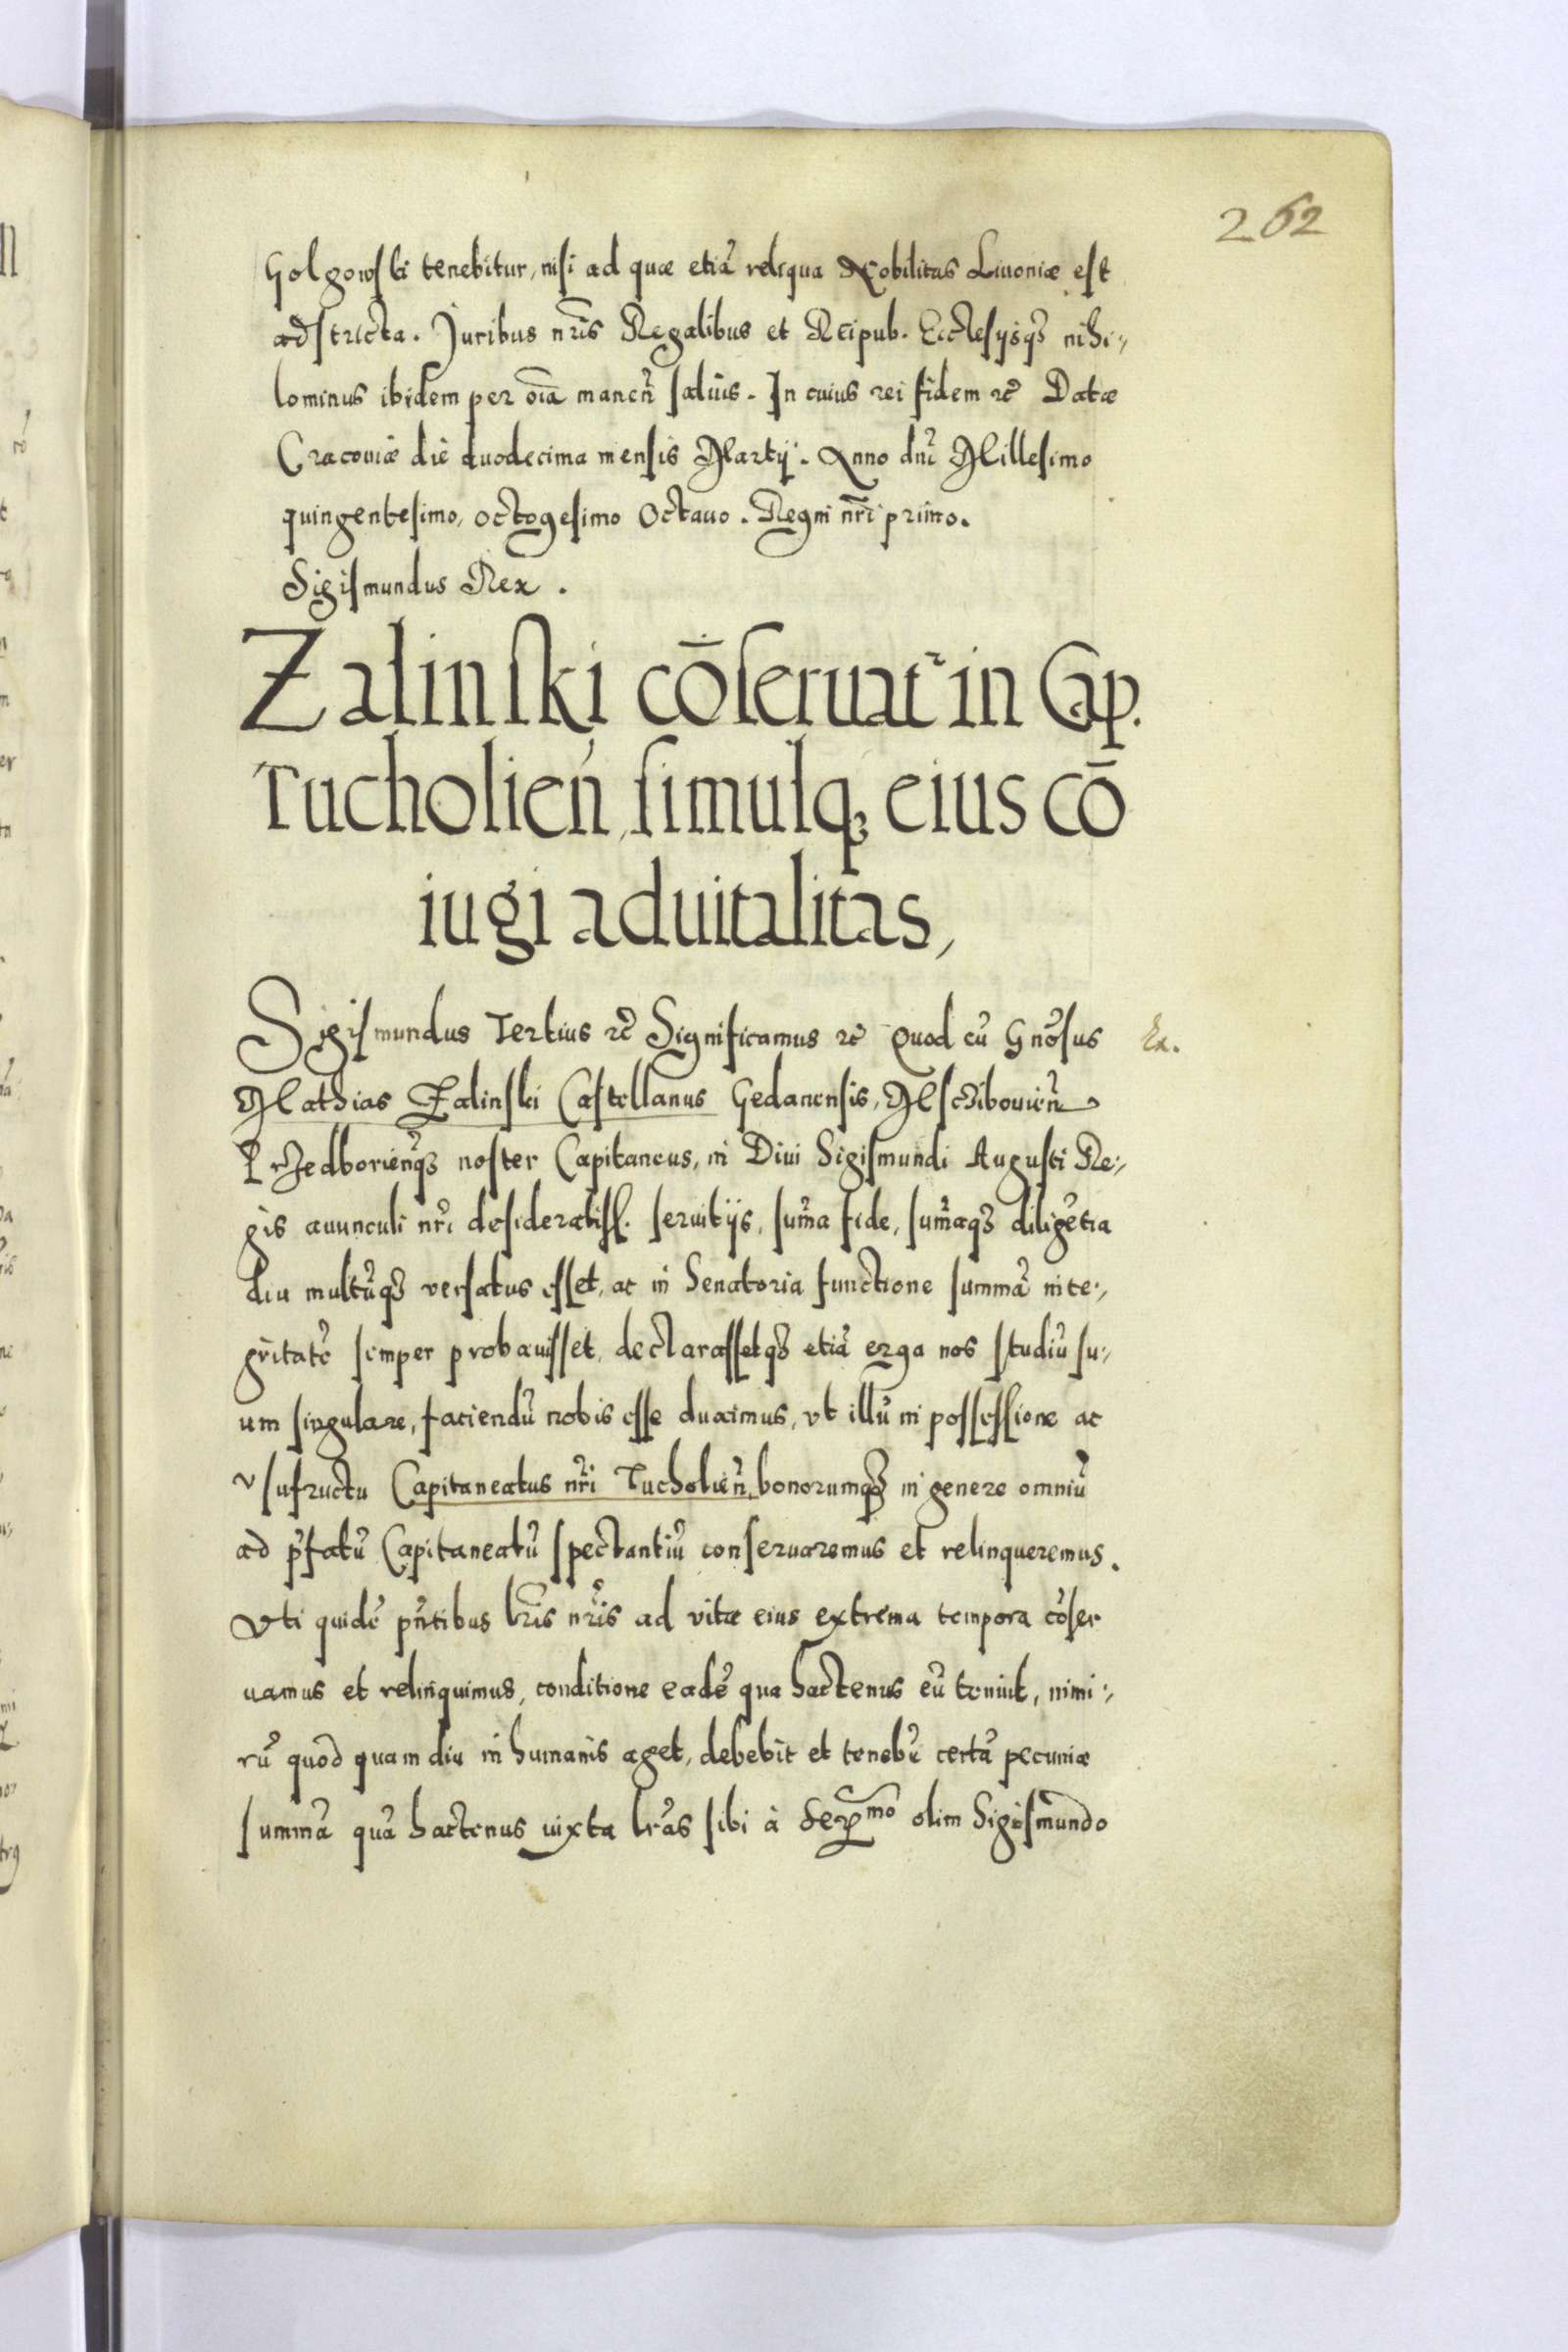 262
Golgowski tenebitur, nisi ad quæ etiã reliqua Nobilitas Liuoniæ est
adstricta. Juribus nr̃is Regalibus et Reipub. Ecclesijsq3 nihi-
lominus ibidem per oĩa manen̄ saluis. In cuius rei fidem ꝛc̃ Datæ
Cracouiæ die duodecima mensis Martij. Anno dnĩ Millesimo
quingentesimo, octogesimo Octauo. Regni nr̃i primo.
Sigismundus Rex.
Zalinski cōseruat̃ in Cap.
Tucholien̄, simulq3 eius cō
iugi aduitalitas,
Sigismundus Tertius ꝛc̃ Significamus ꝛc̃ Quod cũ Gnõsus
Ex.
Mathias Zalinski Castellanus Gedanensis, Mschibouien̄
Przedborienq̃3 noster Capitaneus, in Diui Sigismundi Augusti Re-
gis auunculi nr̃i desideratiss. seruitijs, sum̃a fide, sum̃aq3 diligẽtia
diu multũq3 versatus esset, ac in Senatoria functione summã inte-
gritatẽ semper probauisset, declarassetq3 etiã erga nos studiũ su-
um singulare, faciendũ nobis esse duximus, vt illũ in possessione ac
vsufructu Capitaneatus nr̃i Tucholien̄, bonorumq3 in genere omniũ
ad p̃fatũ Capitaneatũ spectantiũ conseruaremus et relinqueremus.
Vti quidẽ pñtibus lr̃is nr̃is ad vitæ eius extrema tempora cõser
uamus et relinquimus, conditione eadẽ qua hactenus eũ tenuit, nimi-
rũ quod quam diu in humanis aget, debebit et tenebr̃ certã pecuniæ
summã quã hactenus iuxta lr̃as sibi à Ser^mo olim Sigismundo